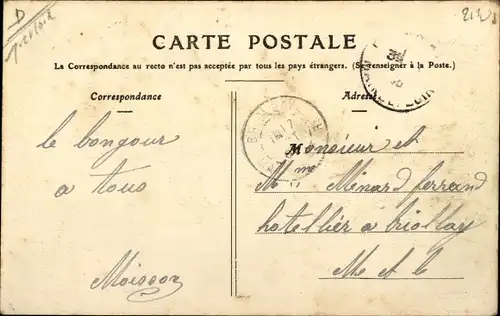 CARTE POSTALE
La Correspondance au recto n'est pas acceptée par tous les pays étrangers. (Se renseigner à la Poste.)
Correspondance
Adresse
le bongour
a tous
Moisson
Monsieur et
Mme Ménard ferrand
hotellier à briollay
M et L